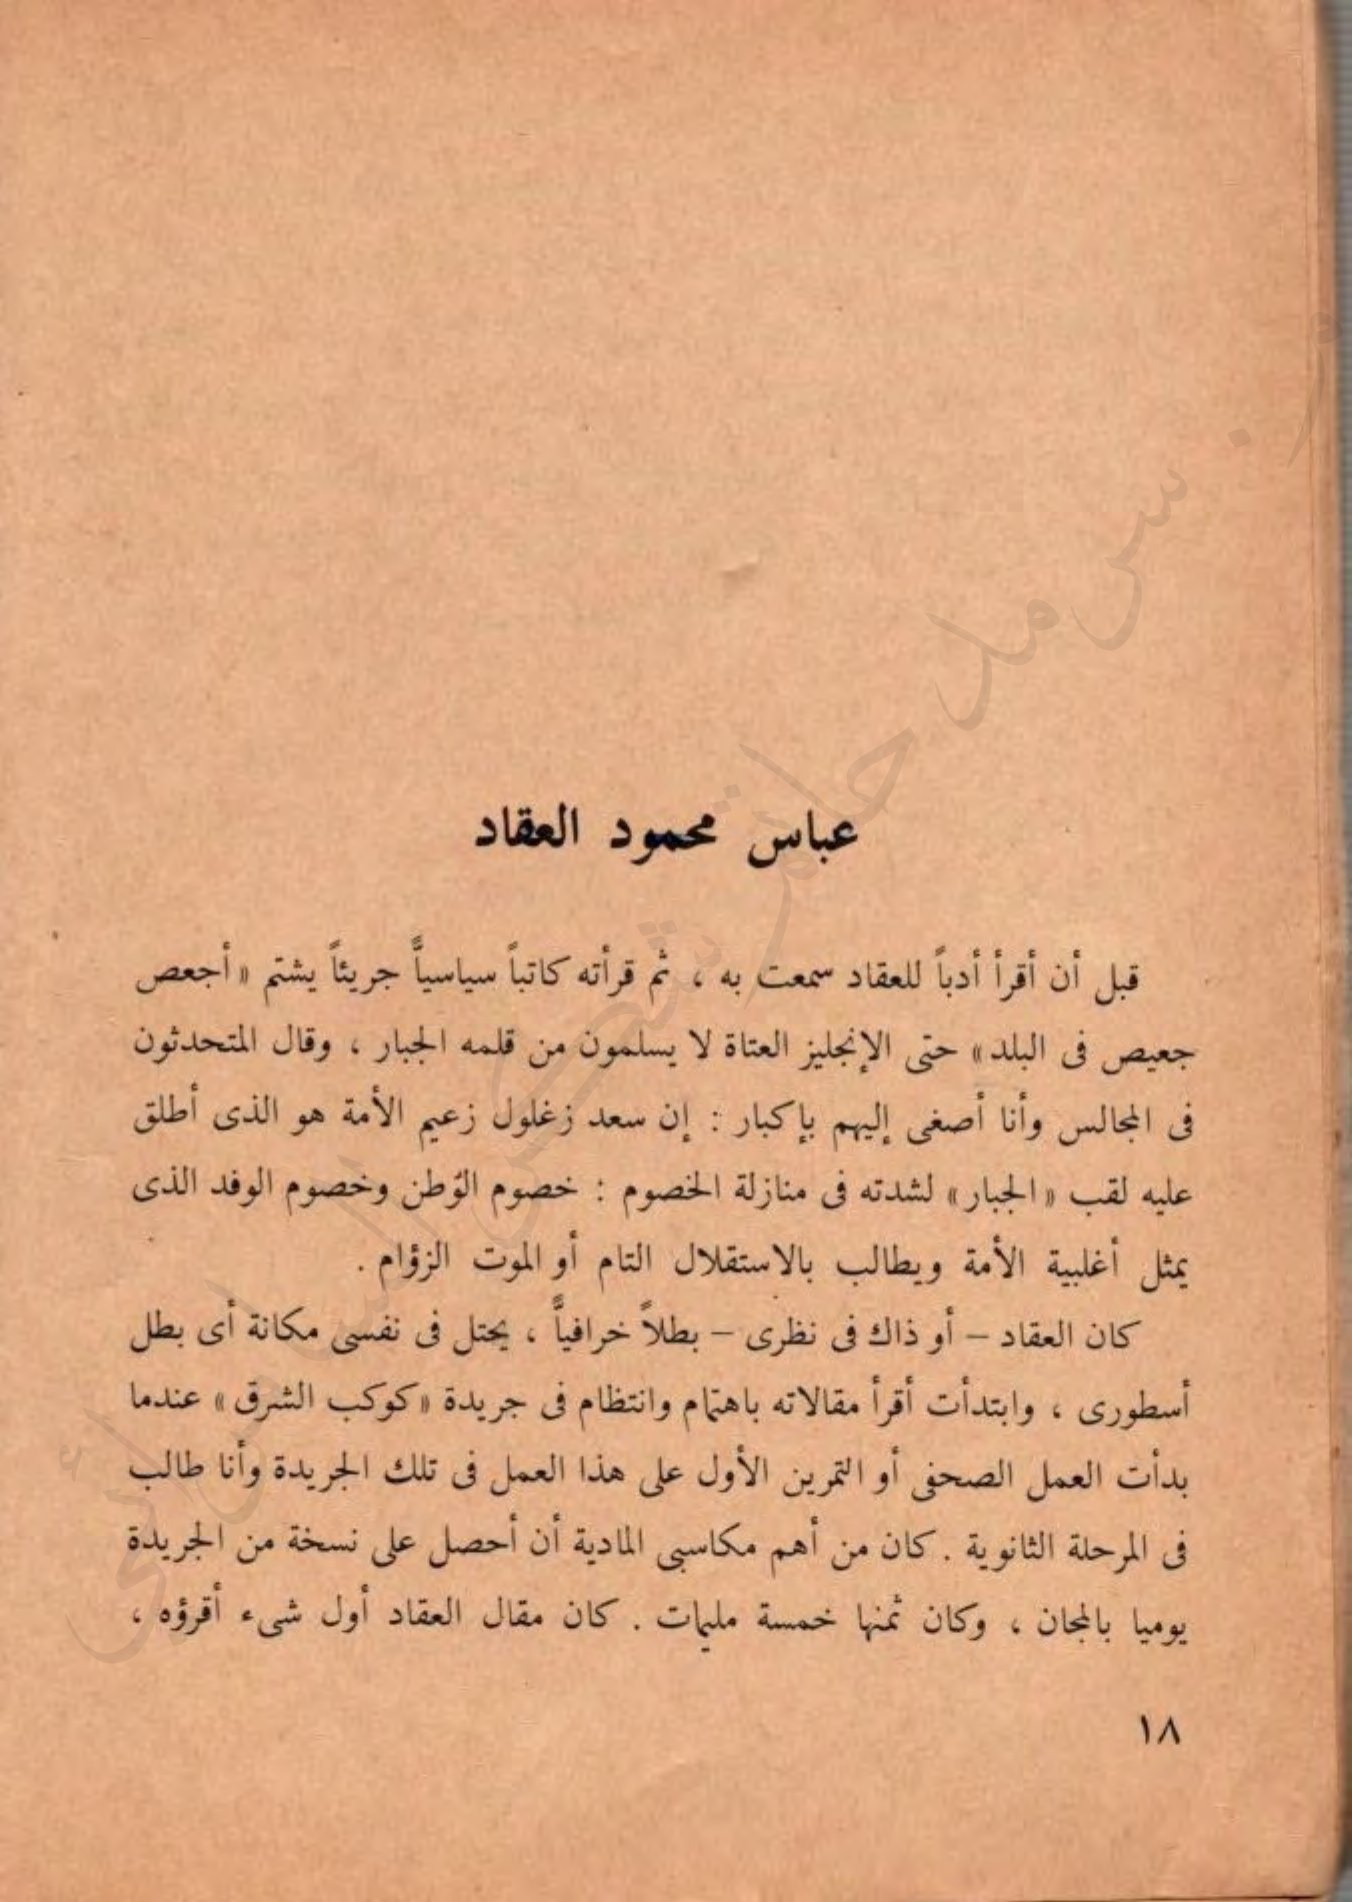 عباس محمود العقاد
قبل أن أقرأ أدباً للعقاد سمعت به ، ثم قرأته كاتباً سياسياً جريئاً يشتم « أجعص
جعيص فى البلد » حتى الإنجليز العتاة لا يسلمون من قلمه الجبار ، وقال المتحدثون
فى المجالس وأنا أصغى إليهم بإكبار : إن سعد زغلول زعيم الأمة هو الذى أطلق
عليه لقب « الجبار » لشدته فى منازلة الخصوم : خصوم الوطن وخصوم الوفد الذى
يمثل أغلبية الأمة ويطالب بالاستقلال التام أو الموت الزؤام .
كان العقاد – أو ذاك فى نظرى – بطلاً خرافياً ، يحتل فى نفسى مكانة أى بطل
أسطورى ، وابتدأت أقرأ مقالاته باهتمام وانتظام فى جريدة « كوكب الشرق » عندما
بدأت العمل الصحفى أو التمرين الأول على هذا العمل فى تلك الجريدة وأنا طالب
فى المرحلة الثانوية . كان من أهم مكاسبى المادية أن أحصل على نسخة من الجريدة
يوميا بالمجان ، وكان ثمنها خمسة مليمات . كان مقال العقاد أول شىء أقرؤه ،
١٨